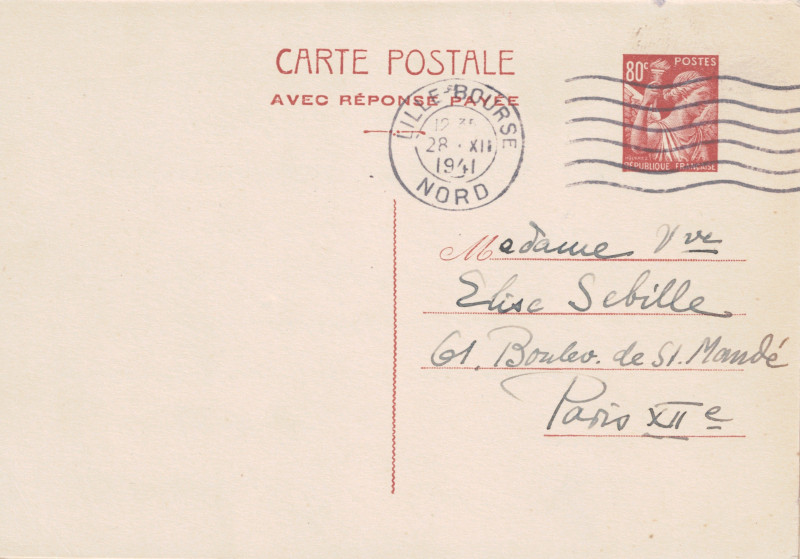 CARTE POSTALE
AVEC RÉPONSE PAYÉE
80c POSTES
RÉPUBLIQUE FRANÇAISE
LILLE-BOURSE
28 · XII
1941
NORD
Madame Vve
Elise Sebille
61, Boulev. de St. Mandé
Paris XIIe